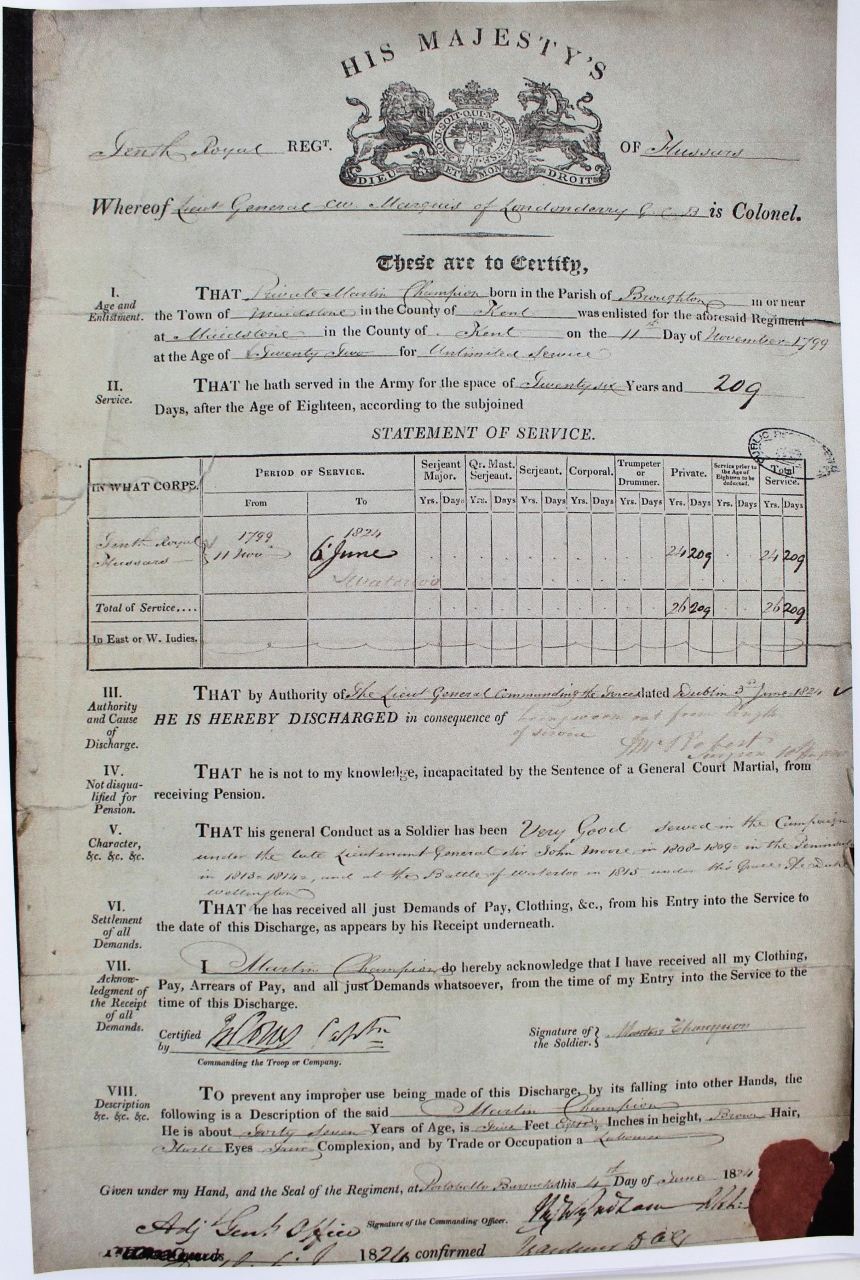 HIS MAJESTY'S
HONI SOIT QUI MAL Y PENSE
DIEU ET MON DROIT
Tenth Royal REGT. OF Hussars
Whereof Lieut General Marquis of Londonderry G C B is Colonel.
These are to Certify,
I.
Age and
Enlistment.
THAT Private Martin Champion born in the Parish of Broughton in or near
the Town of Maidstone in the County of Kent was enlisted for the aforesaid Regiment
at Maidstone in the County of Kent on the 11th Day of November 1799
at the Age of Twenty Two for Unlimited Service
II.
Service.
THAT he hath served in the Army for the space of Twenty six Years and 209
Days, after the Age of Eighteen, according to the subjoined
STATEMENT OF SERVICE.
IN WHAT CORPS. PERIOD OF SERVICE. Serjeant Major. Qr. Mast. Serjeant. Serjeant. Corporal. Trumpeter or Drummer. Private. Service prior to the Age of Eighteen to be deducted. Total Service.
From To Yrs. Days Yrs. Days Yrs. Days Yrs. Days Yrs. Days Yrs. Days Yrs. Days Yrs. Days
Tenth Royal Hussars 1799 11 Nov 1824 6 June 24 209 24 209
Waterloo
Total of Service.... 26 209 26 209
In East or W. Indies.
III.
Authority
and Cause
of
Discharge.
THAT by Authority of The Lieut General Commanding the Forces dated Dublin 3rd June 1824
HE IS HEREBY DISCHARGED in consequence of being worn out from length
of service
Surgeon 10th
IV.
Not disqua-
lified for
Pension.
THAT he is not to my knowledge, incapacitated by the Sentence of a General Court Martial, from
receiving Pension.
V.
Character,
&c. &c. &c.
THAT his general Conduct as a Soldier has been Very Good served in the Campaign
under the late Lieutenant General Sir John Moore in 1808-1809 in the
in 1813-1814, and at the Battle of Waterloo in 1815 under his Grace The Duke
Wellington
VI.
Settlement
of all
Demands.
THAT he has received all just Demands of Pay, Clothing, &c., from his Entry into the Service to
the date of this Discharge, as appears by his Receipt underneath.
VII.
Acknow-
ledgment of
the Receipt
of all
Demands.
I Martin Champion do hereby acknowledge that I have received all my Clothing,
Pay, Arrears of Pay, and all just Demands whatsoever, from the time of my Entry into the Service to the
time of this Discharge.
Certified
by Captn
Commanding the Troop or Company.
Signature of
the Soldier. Martin Champion
VIII.
Description
&c. &c. &c.
TO prevent any improper use being made of this Discharge, by its falling into other Hands, the
following is a Description of the said Martin Champion
He is about Forty Seven Years of Age, is Five Feet Inches in height, Brown Hair,
Eyes Fair Complexion, and by Trade or Occupation a Labourer
Given under my Hand, and the Seal of the Regiment, at Portobello Barracks this 4th Day of June 1824
Signature of the Commanding Officer. Wyndham
Adj Genl Office
1824 confirmed